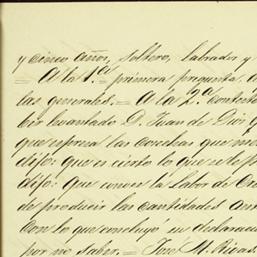 y cinco años, soltero, labrador y
= A la 1.ª primera pregunta.
las generales. = A la 2.ª contestó
levantado D. Juan de Dios
que expresa las conchas que
dijo: que es cierto lo que
dijo: Que conoce la Labor de
de producir las cantidades
con lo que concluyó su declarac
por no saber. = José M. Rivas